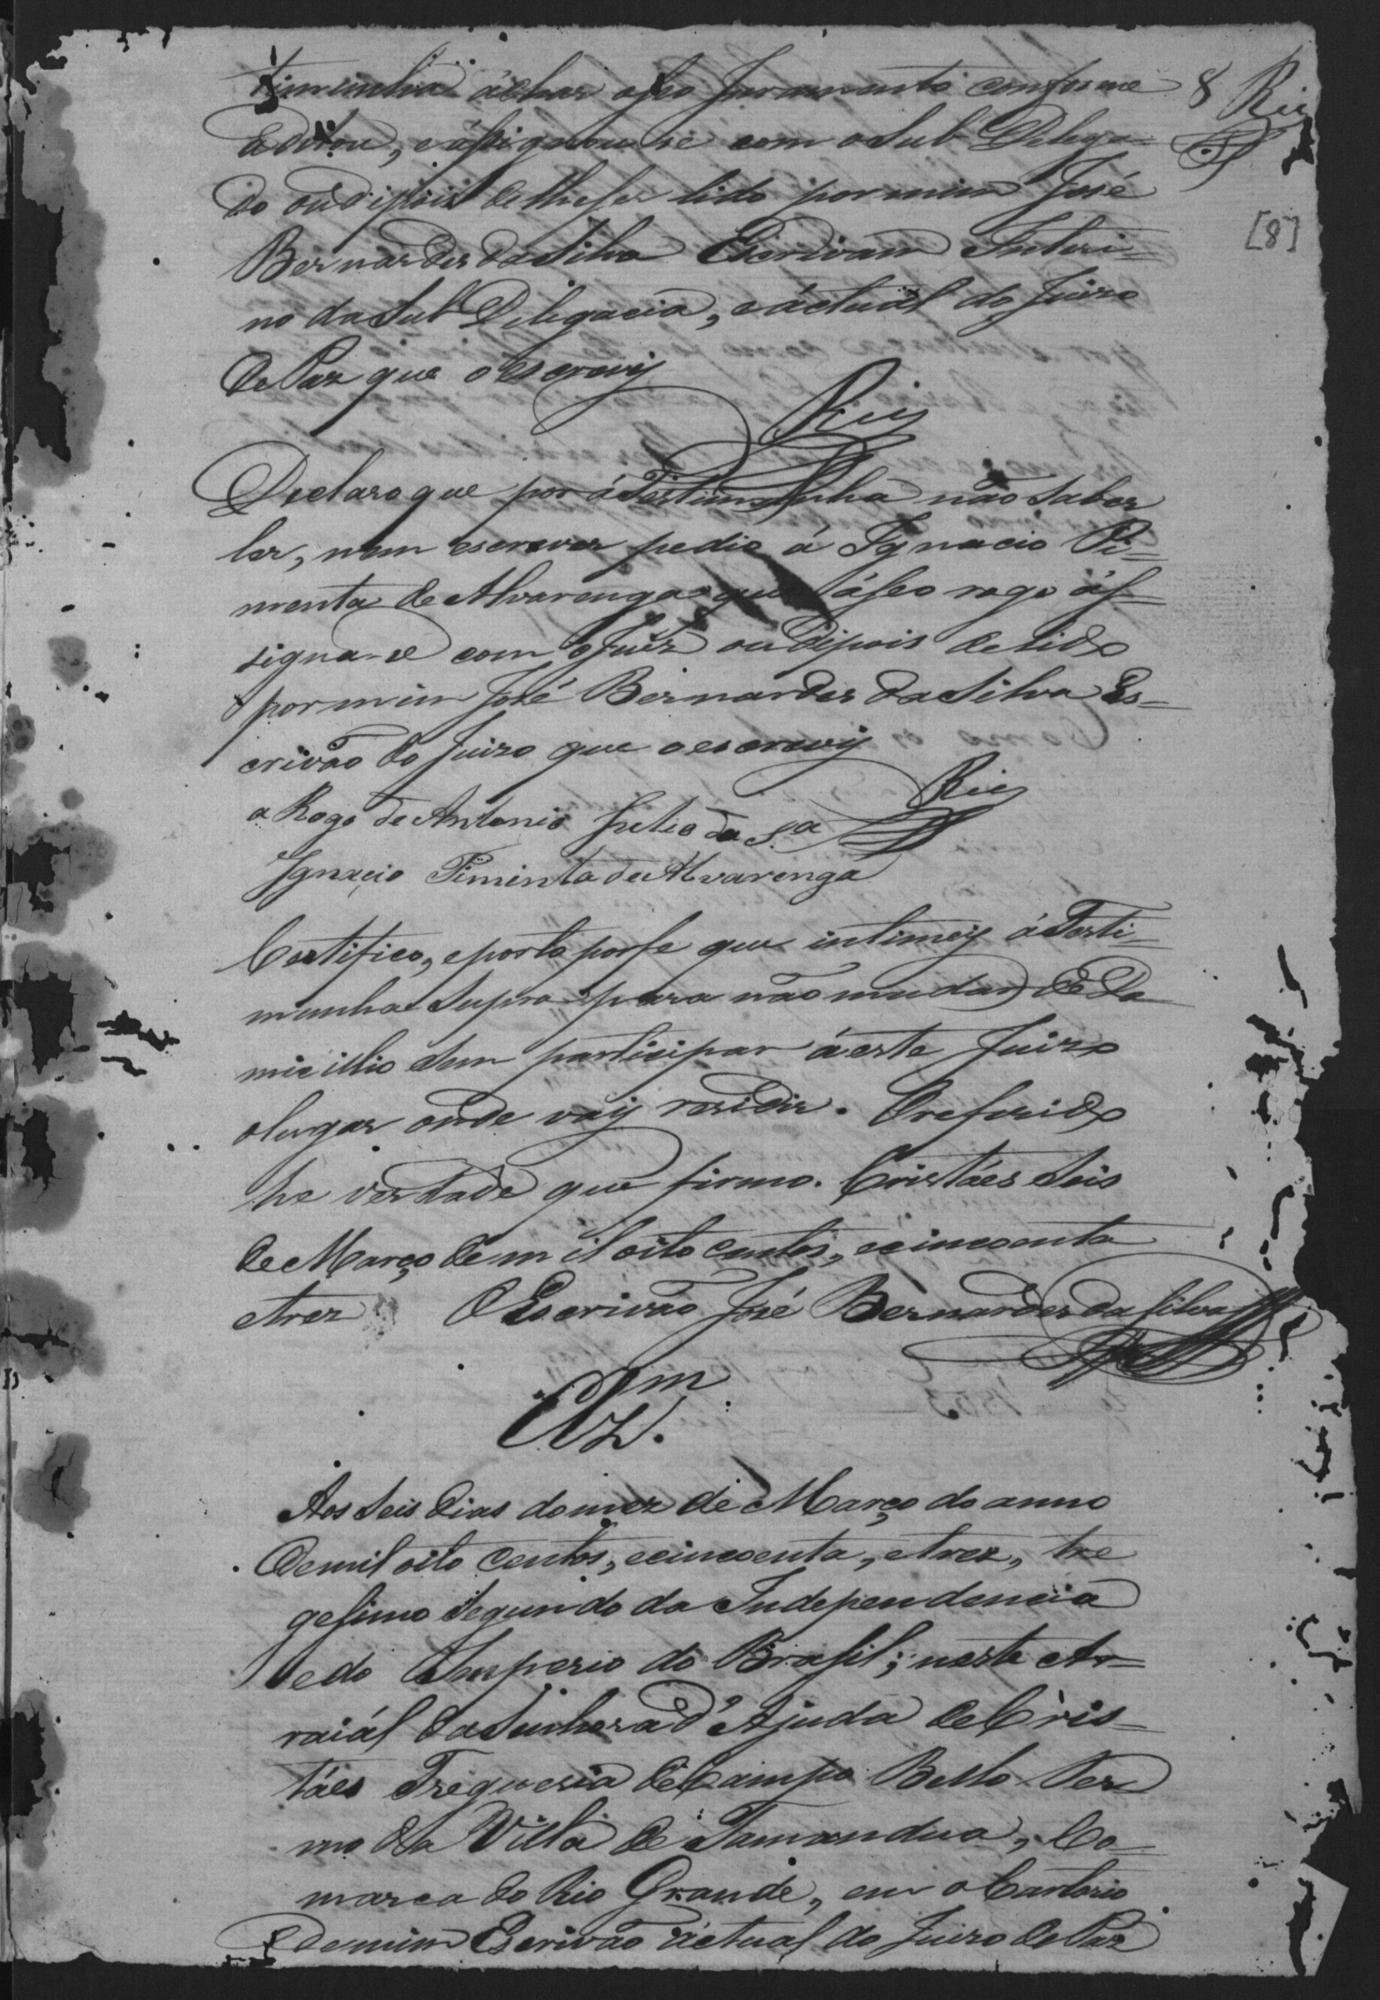 timunha áchar oseo juramento conforme
aditou, e ásignou se com o Sub Delega-
do ou dipois de lhe ser lido por mim José
Bernardes da Silva Escrivam Interi-
no da Sub Deligacia, e áctual do Juizo
de Paz que o escrevij
Reis
8 Reis
[8]
Declaro que por á Testimunha não saber
ler, nem escrever pedio á Ignacio Pi-
menta de Alvarenga que áseo rogo ás-
signa-se com o Juiz ou dipois de lido
por mim José Bernardes da Silva Es-
crivão do Juizo que o escrevij
Reis
a Rogo de Antonio Julio da S.a
Ignacio Pimenta de Alvarenga
Certifico, e porto por fe que intimeij á Testi-
munha supra para não mudar de Do
micilio sem participar á este Juizo
olugar onde vaij residir. O referido
he verdade que firmo. Cristáes Seis
de Março de mil oito centos, e cincoenta
e trez O Escrivão José Bernardes da Silva
Aos Seis dias do mez de Março do anno
de mil oito centos, e cincoenta, e trez, tre
gesimo Segundo da Independencia
e do Imperio do Brasil; neste Ar-
raiál da Senhora d'Ajuda de Cris-
táes Freguesia de Campo Bello Ter
mo da Villa de Tamandua, Co-
marca do Rio Grande, em o Cartorio
de mim Escrivão áctual do Juizo de Paz